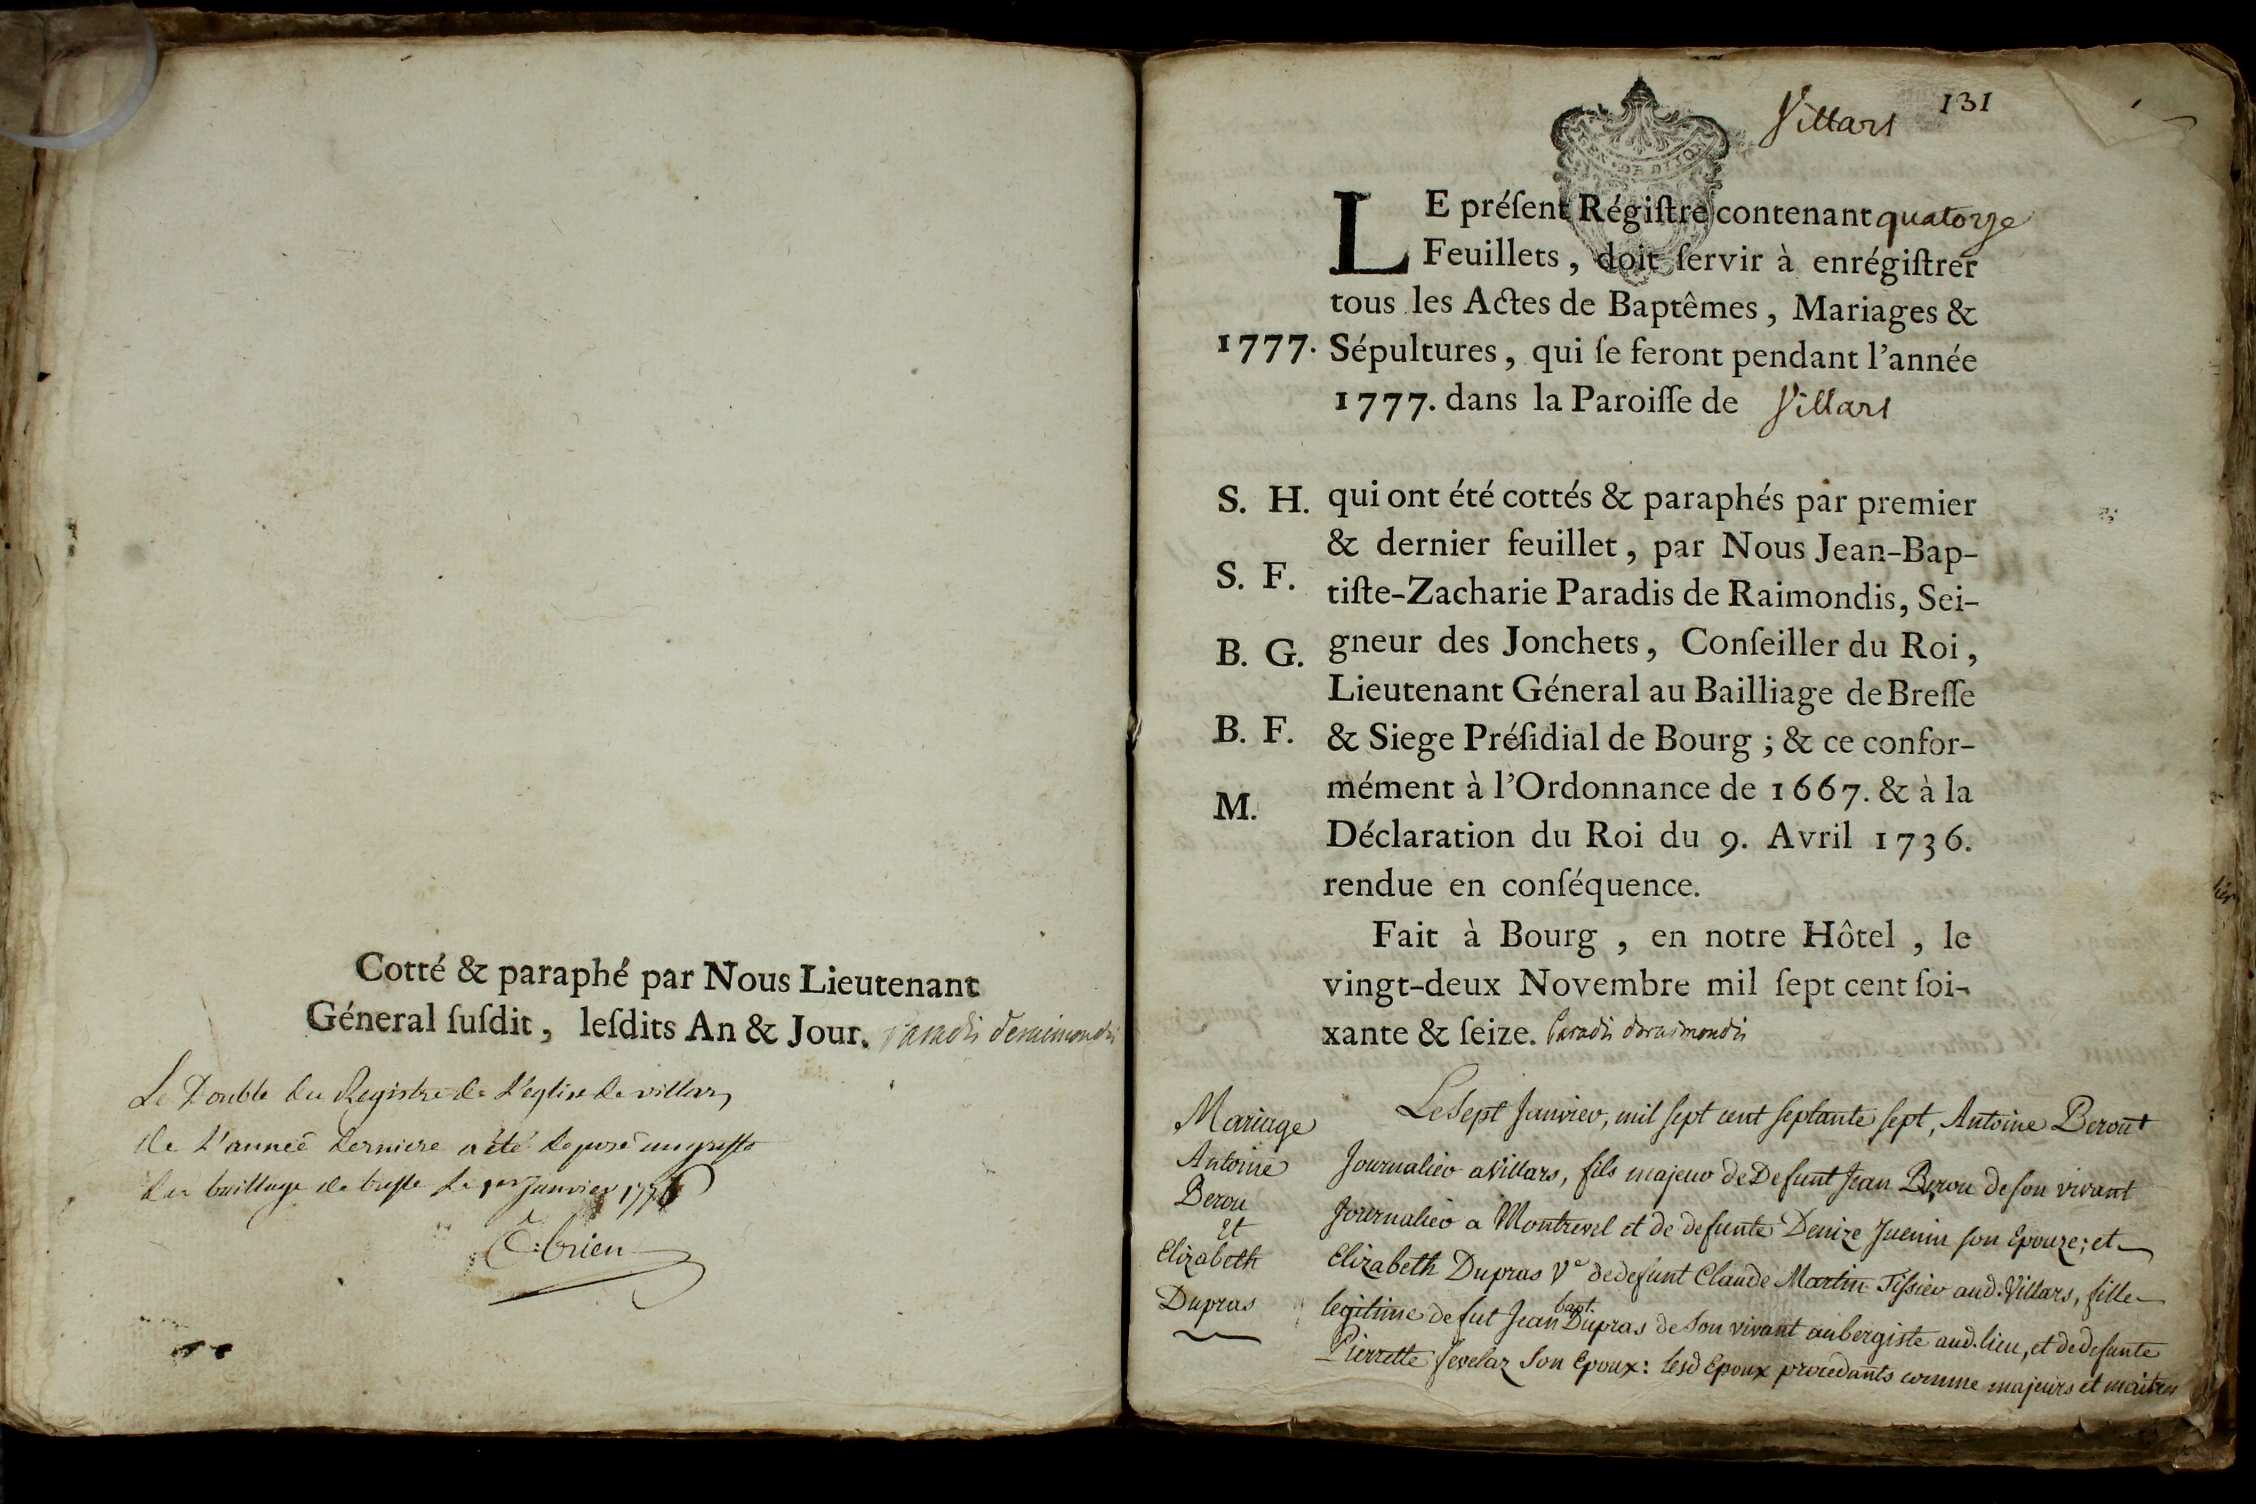 Cotté & paraphé par Nous Lieutenant
Géneral ſuſdit, leſdits An & Jour. Paradis deraimondis
Le Double du Registre de L'eglise de villars
de L'année derniere a été deposé au greffe
du bailliage de bresse le 1er Janvier 177
Obrien
131
Villars
GEN · DE DIJON
LE préſent Régiſtre contenant quatorze
Feuillets, doit ſervir à enrégiſtrer
tous les Actes de Baptêmes, Mariages &
1777. Sépultures, qui ſe feront pendant l'année
1777. dans la Paroiſſe de Villars
S. H. qui ont été cottés & paraphés par premier
& dernier feuillet, par Nous Jean-Bap-
S. F. tiſte-Zacharie Paradis de Raimondis, Sei-
B. G. gneur des Jonchets, Conſeiller du Roi,
Lieutenant Géneral au Bailliage de Breſſe
B. F. & Siege Préſidial de Bourg ; & ce confor-
M. mément à l'Ordonnance de 1667. & à la
Déclaration du Roi du 9. Avril 1736.
rendue en conſéquence.
Fait à Bourg , en notre Hôtel , le
vingt-deux Novembre mil ſept cent ſoi-
xante & ſeize. Paradis deraimondis
Mariage
Antoine
Berou
et
Elizabeth
Dupras
Le Sept Janvier, mil sept cent septante sept, Antoine Berout
Journalier a Villars, fils majeur de Defunt Jean Berou de son vivant
Journalier a Montrevel et de defunte Denize Juenin son Epouze; et
Elizabeth Dupras Ve de defunt Claude Martin Tissier aud. Villars, fille
legitime de fut Jean bapt. Dupras de Son vivant aubergiste aud. lieu, et de defunte
Pierrette Jevelaz Son Epoux: lesd Epoux procedants comme majeurs et maitres